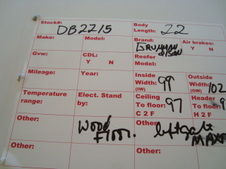 Stock#: DB2215 Body Length: 22
Make: Model: Brand: GRUMMAN OLSON Air brakes: Y N
Gvw: CDL: Y N Reefer Model:
Mileage: Year: Inside Width: 99 Outside Width: 102
Temperature range: Elect. Stand by: Ceiling To floor: 97 Header To floor: 9
C 2 F H 2 F
Other: Wood Floor. Other: liftgate
Other: Other: MAXON